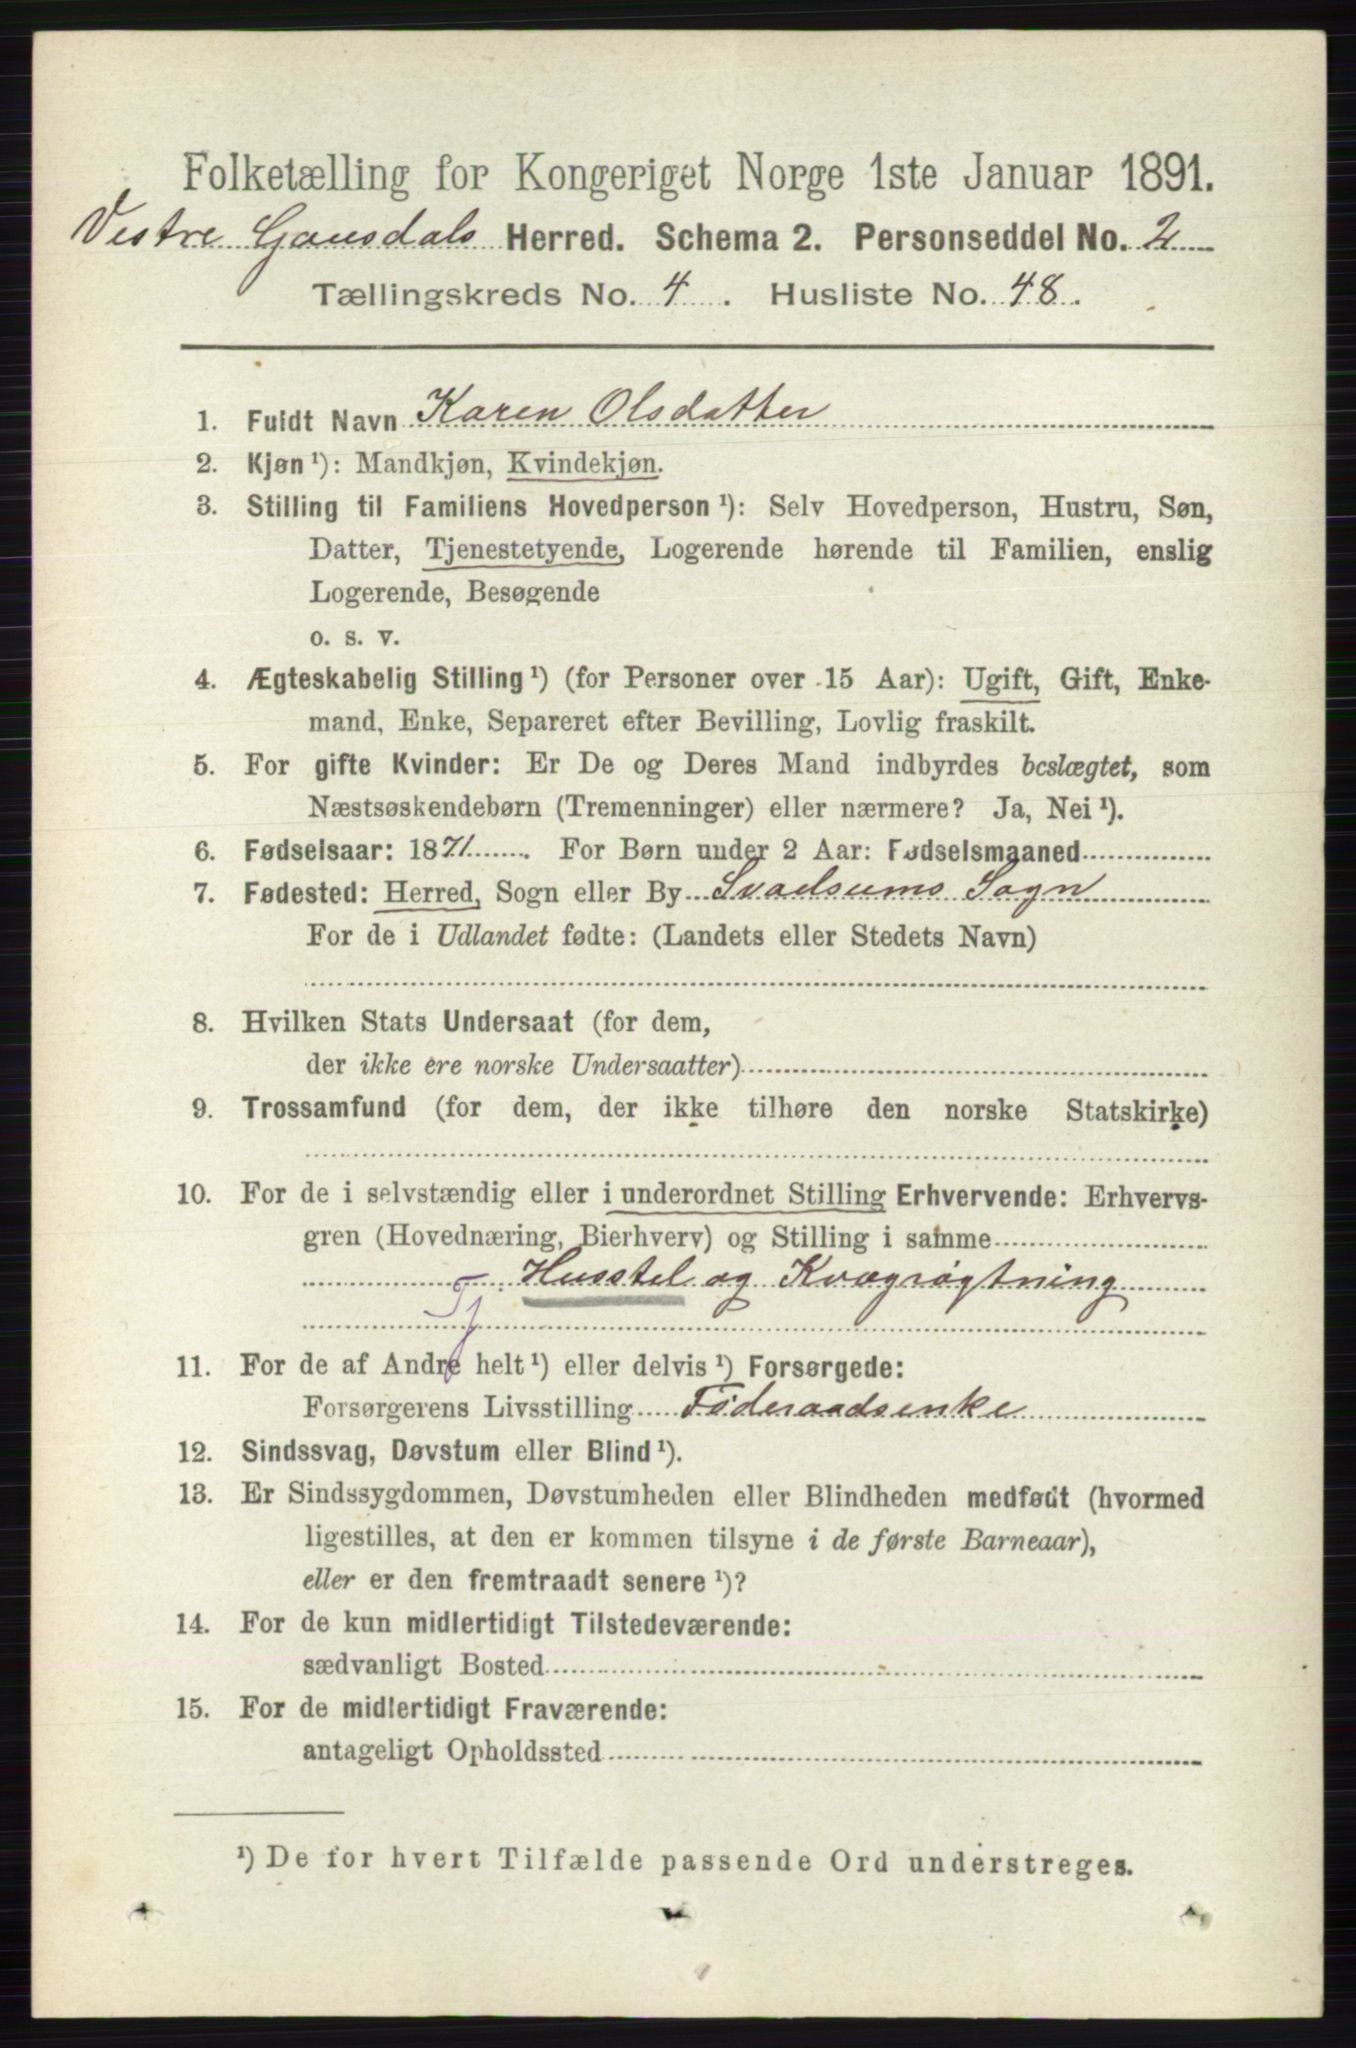 Folketælling for Kongeriget Norge 1ste Januar 1891.
Vestre Gausdals Herred. Schema 2. Personseddel No. 2
Tællingskreds No. 4. Husliste No. 48.
1. Fuldt Navn Karen Olsdatter
2. Kjøn ¹): Mandkjøn, Kvindekjøn.
3. Stilling til Familiens Hovedperson ¹): Selv Hovedperson, Hustru, Søn,
Datter, Tjenestetyende, Logerende hørende til Familien, enslig
Logerende, Besøgende
o. s. v.
4. Ægteskabelig Stilling ¹) (for Personer over 15 Aar): Ugift, Gift, Enke-
mand, Enke, Separeret efter Bevilling, Lovlig fraskilt.
5. For gifte Kvinder: Er De og Deres Mand indbyrdes beslægtet, som
Næstsøskendebørn (Tremenninger) eller nærmere? Ja, Nei ¹).
6. Fødselsaar: 1871. For Børn under 2 Aar: Fødselsmaaned
7. Fødested: Herred, Sogn eller By Svadsums Sogn
For de i Udlandet fødte: (Landets eller Stedets Navn)
8. Hvilken Stats Undersaat (for dem,
der ikke ere norske Undersaatter)
9. Trossamfund (for dem, der ikke tilhøre den norske Statskirke)
10. For de i selvstændig eller i underordnet Stilling Erhvervende: Erhvervs-
gren (Hovednæring, Bierhverv) og Stilling i samme
Husstel og Kvægrøgtning
Tj
11. For de af Andre helt ¹) eller delvis ¹) Forsørgede:
Forsørgerens Livsstilling Føderaadsenke
12. Sindssvag, Døvstum eller Blind ¹).
13. Er Sindssygdommen, Døvstumheden eller Blindheden medfødt (hvormed
ligestilles, at den er kommen tilsyne i de første Barneaar),
eller er den fremtraadt senere ¹)?
14. For de kun midlertidigt Tilstedeværende:
sædvanligt Bosted
15. For de midlertidigt Fraværende:
antageligt Opholdssted
¹) De for hvert Tilfælde passende Ord understreges.